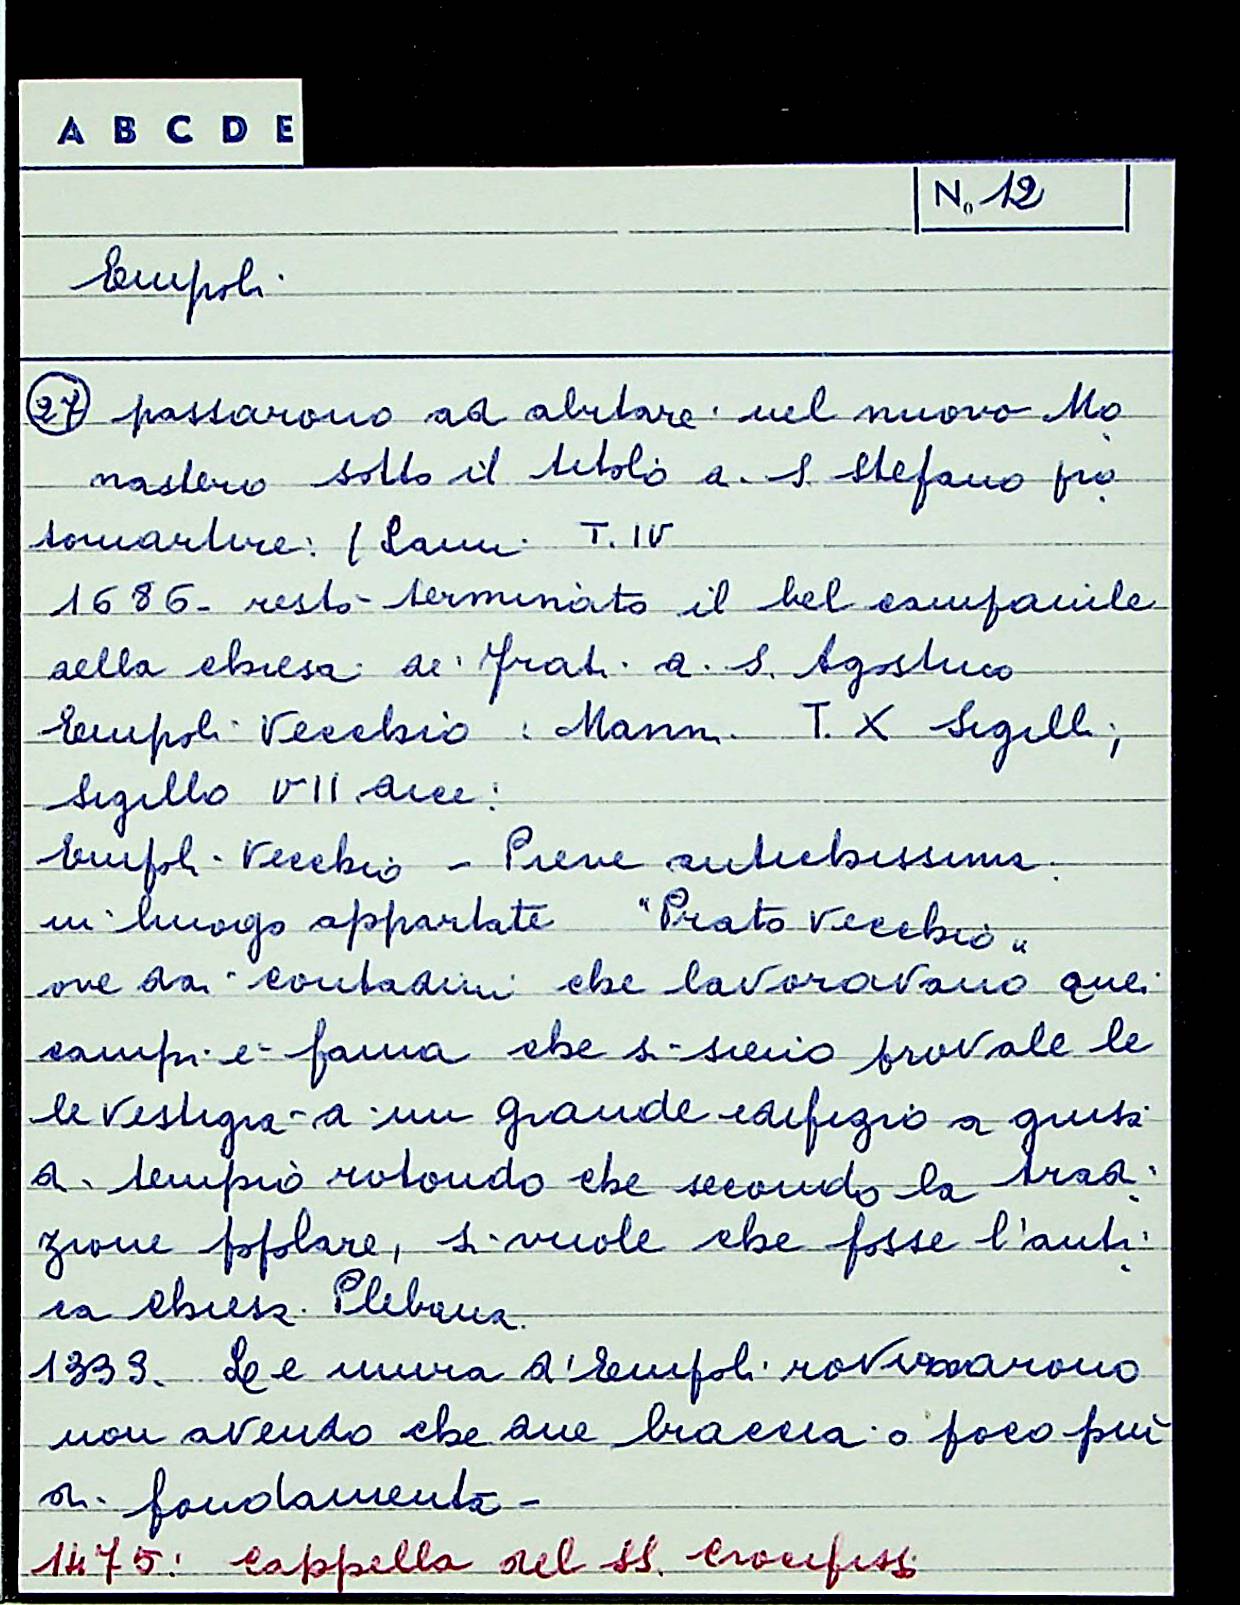 A B C D E
N. 12
Empoli
27 passarono ad abitare nel nuovo Mo
nastero sotto il titolo di S. Stefano pro
tomartire: (Lami T. IV
1686- restò terminato il bel campanile
della chiesa de' Frati di S. Agostino
Empoli Vecchio : Mann. T. X Sigilli;
Sigillo VII dice:
Empoli Vecchio - Pieve antichissima
in luogo appartate "Prato Vecchio"
ove dai contadini che lavoravano quei
campi è fama che si sieno trovate le
le vestigia di un grande edifizio a guisa
di tempio rotondo che secondo la tradi
zione popolare, si vuole che fosse l'anti
ca chiesa Plebana.
1333. Le mura d'Empoli rovinarono
non avendo che due braccia o poco più
di fondamenta -
1475: Cappella del SS. Crocifisso